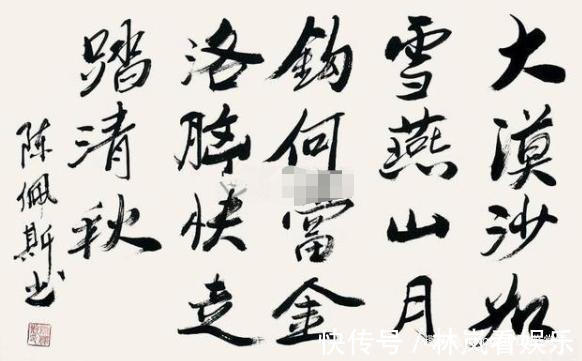 大漠沙如
雪燕山月
鈎何當金
洛腦快走
踏清秋
陈佩斯书
快传号/林岚看娱乐